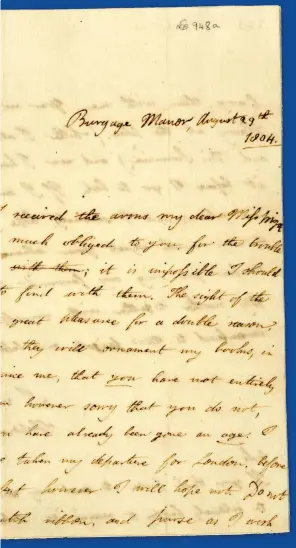 LB 948a
Burgage Manor, August 29th
1804.
received the arms my dear Miss Pigot
much obliged to you, for the trouble
with them; it is impossible I should
to find with them. The sight of the
great pleasure for a double reason,
they will ornament my books, in
me, that you have not entirely
however sorry that you do not,
have already been gone an age. I
taken my departure for London, before
but however I will hope not. Do not
ribbon, and purse as I wish